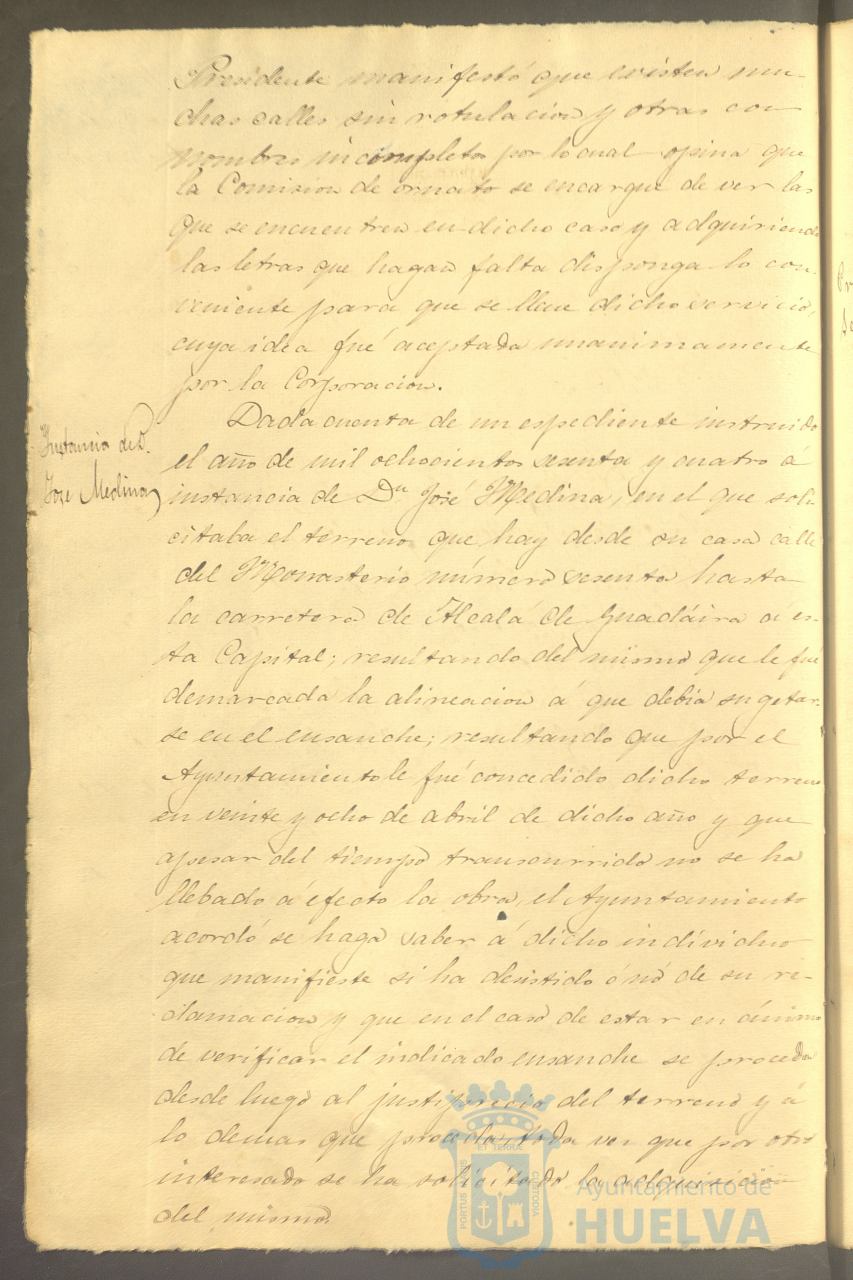 Presidente manifestó que existen mu-
chas calles sin rotulacion y otras con
nombres incompletos por lo cual opina que
la Comision de ornato se encargue de ver las
que se encuentren en dicho caso y adquiriendo
las letras que hagan falta disponga lo con-
veniente para que se lleve dicho servicio,
cuya idea fué aceptada unanimamente
por la Corporacion.
Instancia de D.
José Medina
Dada cuenta de un espediente instruido
el año de mil ochocientos sesenta y cuatro á
instancia de Dn José Medina, en el que soli-
citaba el terreno que hay desde su casa calle
del Monasterio número sesenta hasta
la carretera de Alcalá de Guadáira á es-
ta Capital; resultando del mismo que le fué
demarcada la alineacion á que debia sugetar-
se en el ensanche; resultando que por el
Ayuntamiento le fué concedido dicho terreno
en veinte y ocho de abril de dicho año y que
apesar del tiempo transcurrido no se ha
llebado á efecto la obra, el Ayuntamiento
acordó se haga saber á dicho individuo
que manifieste si ha desistido ó nó de su re-
clamacion y que en el caso de estar en ánimo
de verificar el indicado ensanche se proceda
desde luego al justiprecio del terreno y á
lo demas que proceda, toda vez que por otro
interesado se ha solicitado la adquisicion
del mismo.
PORTUS MARIS ET TERRÆ CUSTODIA
Ayuntamiento de
HUELVA